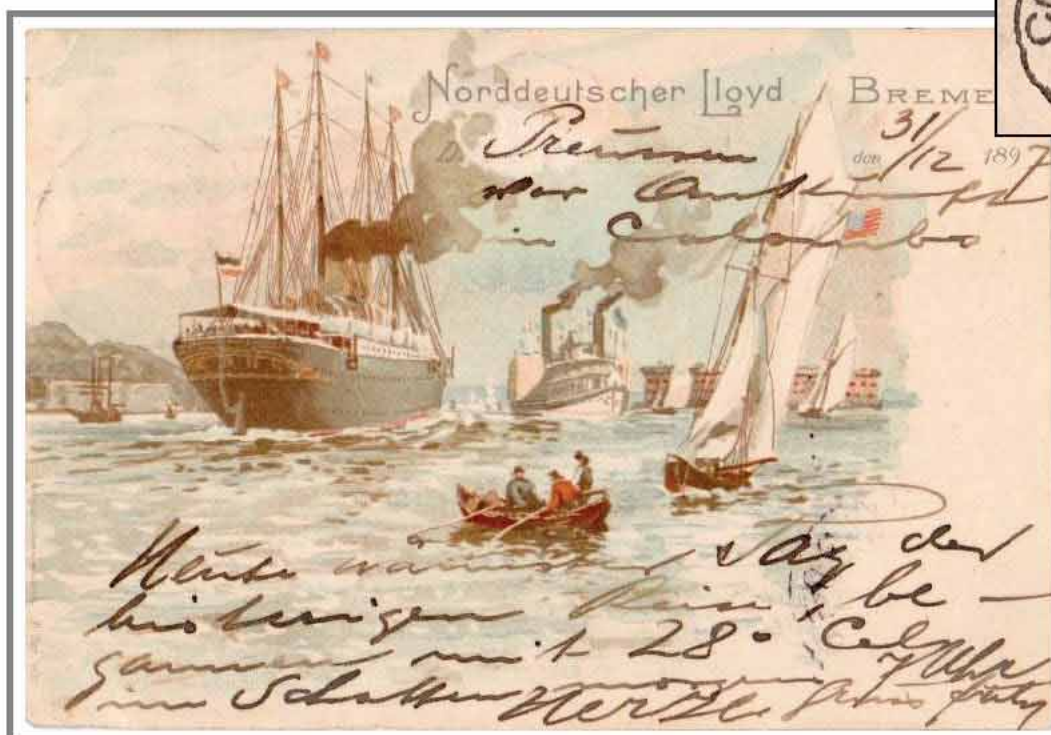 Norddeutscher Lloyd BREME
D. Preussen den 31/12 1897
vor Ankunft
in Colombo
Heute wärmster Tag der
bisherigen Reise, be-
gannen mit 28° Cel
im Schatten morgens 7 Uhr
Herzl. Gruss